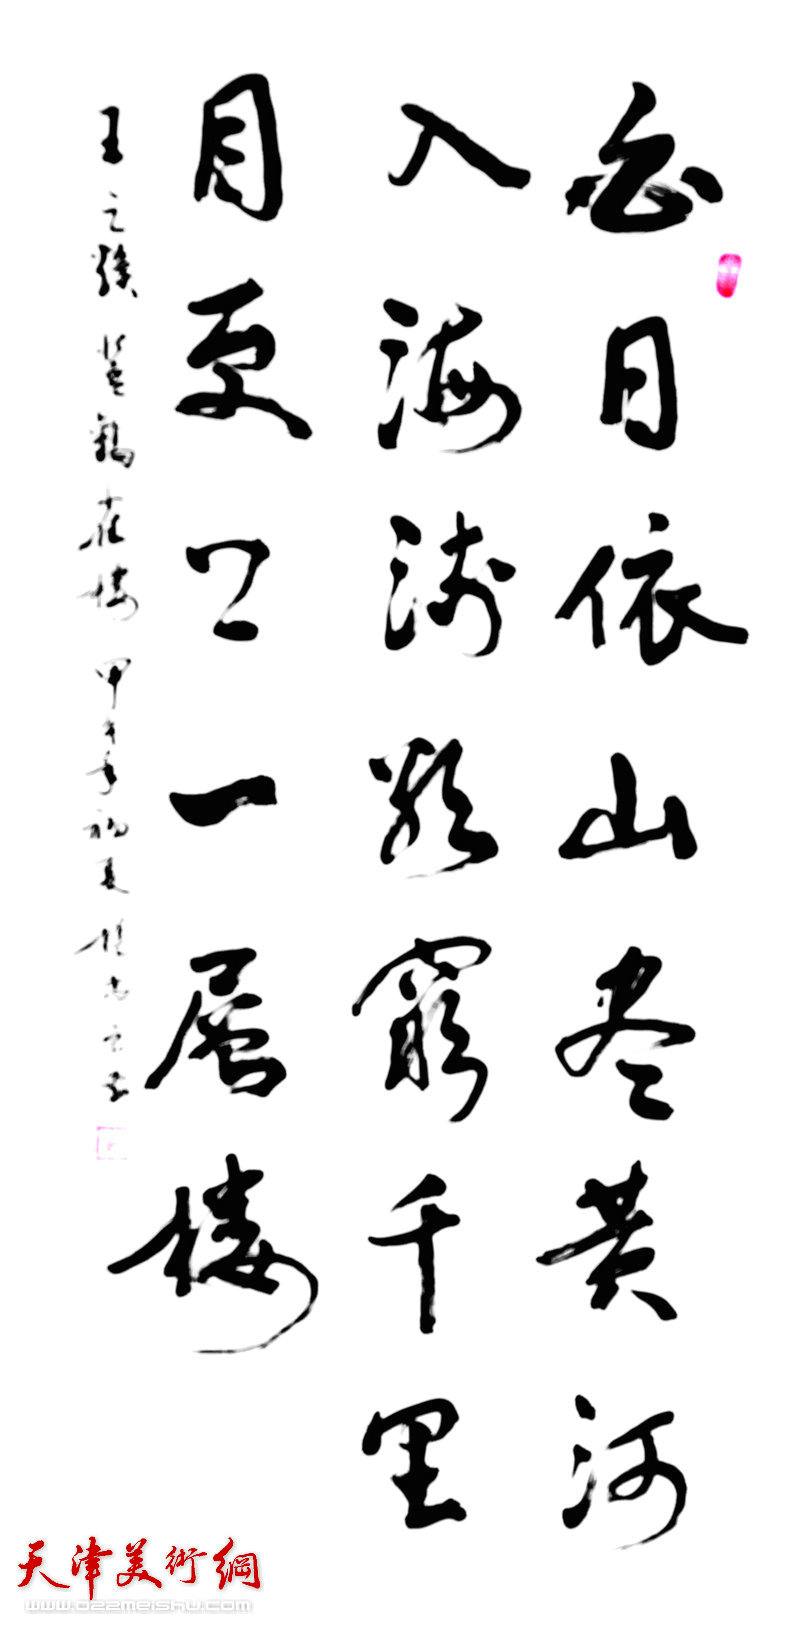 白日依山尽黄河
入海流欲窮千里
目更上一層樓
王之渙登鸛雀樓 甲午年初夏
天津美術網
www.022meishu.com